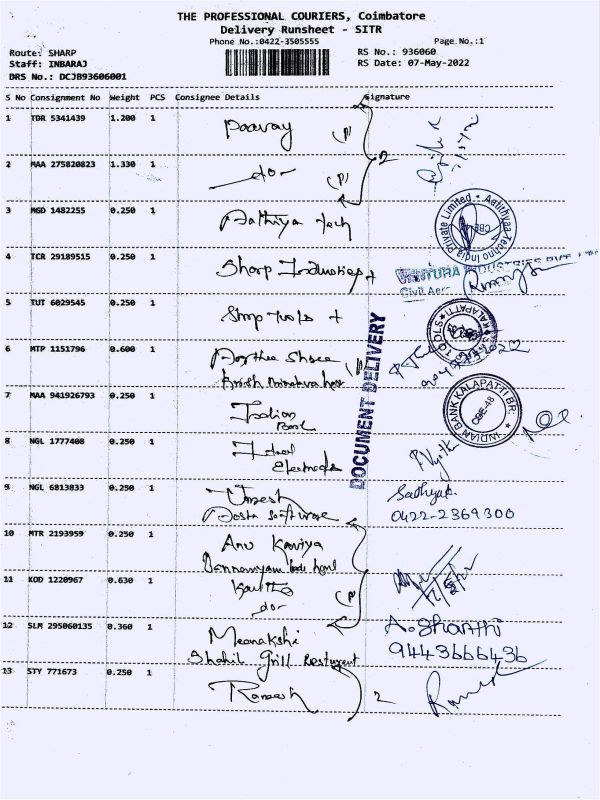 THE PROFESSIONAL COURIERS, Coimbatore
Delivery Runsheet - SITR
Phone No.:0422-3505555 Page No.:1
Route: SHARP RS No.: 936060
Staff: INBARAJ RS Date: 07-May-2022
DRS No.: DCJB93606001
S No Consignment No Weight PCS Consignee Details Signature
1 TDR 5341439 1.200 1 Paavay (P)
2
2 MAA 275820823 1.330 1 -do- (P)
3 MGD 1482255 0.250 1 Aathiya Tech
Aatithyaa Techno India Private Limited
CBE
4 TCR 29189515 0.250 1 Sharp Industries
VENTURA INDUSTRIES PVT. LTD
Civil Aer
5 TUT 6029545 0.250 1 Sharp Tools
TOOLS KALAPATTI
6 MTP 1151796 0.600 1 Shree (P)
Krish
DOCUMENT DELIVERY
7 MAA 941926793 0.250 1 Indian
Bank
INDIAN BANK KALAPATTI BR.
CBE-48
8 NGL 1777408 0.250 1 Ideal
Electrodes
9 NGL 6813833 0.250 1 Umesh
Aosta Software
Sathya
0422-2369300
10 MTR 2193959 0.250 1 Anu Kaviya
Bannariyam
11 KOD 1220967 0.630 1 Kavitha
-do- (P)
12 SLM 295060135 0.360 1 Meenakshi
Shahil Grill Resturent
A. Shanthi
9443666436
13 STY 771673 0.250 1 Ramesh 2